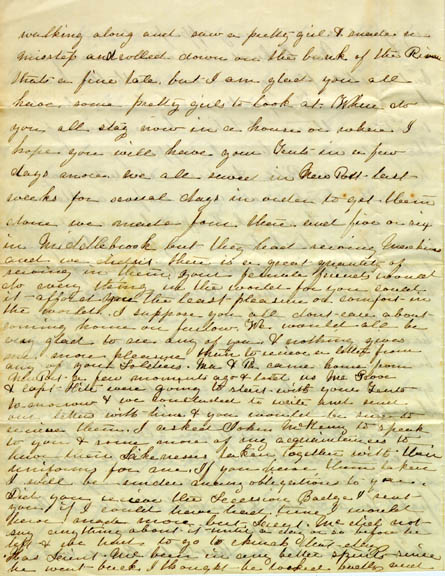 walking along and saw a pretty girl & made a
misstep and rolled down on the bank of the River
thats a fine tale. but I am glad you all
have some pretty girls to look at. Where do
you all stay now in a house or where I
hope you will have your Tents in a few
days more. we all sewed in New Port last
week for several days in order to get them
done we made four there and five or six
in Middlebrook but they had sewing Machines
and we didnt there is a great quantity of
sewing in them, your female friends would
do every thing in the world for you could
it afford you the least pleasure or comfort in
the world. I suppose you all dont care about
coming home on furlow. We would all be
very glad to see any of you & nothing gives
me more pleasure than to receive a letter from
any of you Soldiers. Ma & Pa came home from
a few moments ago & told us Mr
& Capt Hill was going to start with your Tents
to and we concluded to write and send
letters with him & you would be sure to
receive them. I asked John McKemy to speak
to you & some more of my acquaintances to
have their Likenesses taken together with their
uniform for me. If you have them taken
I will be under many obligations to you.
Did you receive the Secession Badge I sent
you, if I could have had time I would
have made more, but Lieut. Mc did not
say anything about until a day or so before he
left & we had to go to church that day.
Has Lieut. Mc been in any better spirits since
he went back, I thought he looked badly and